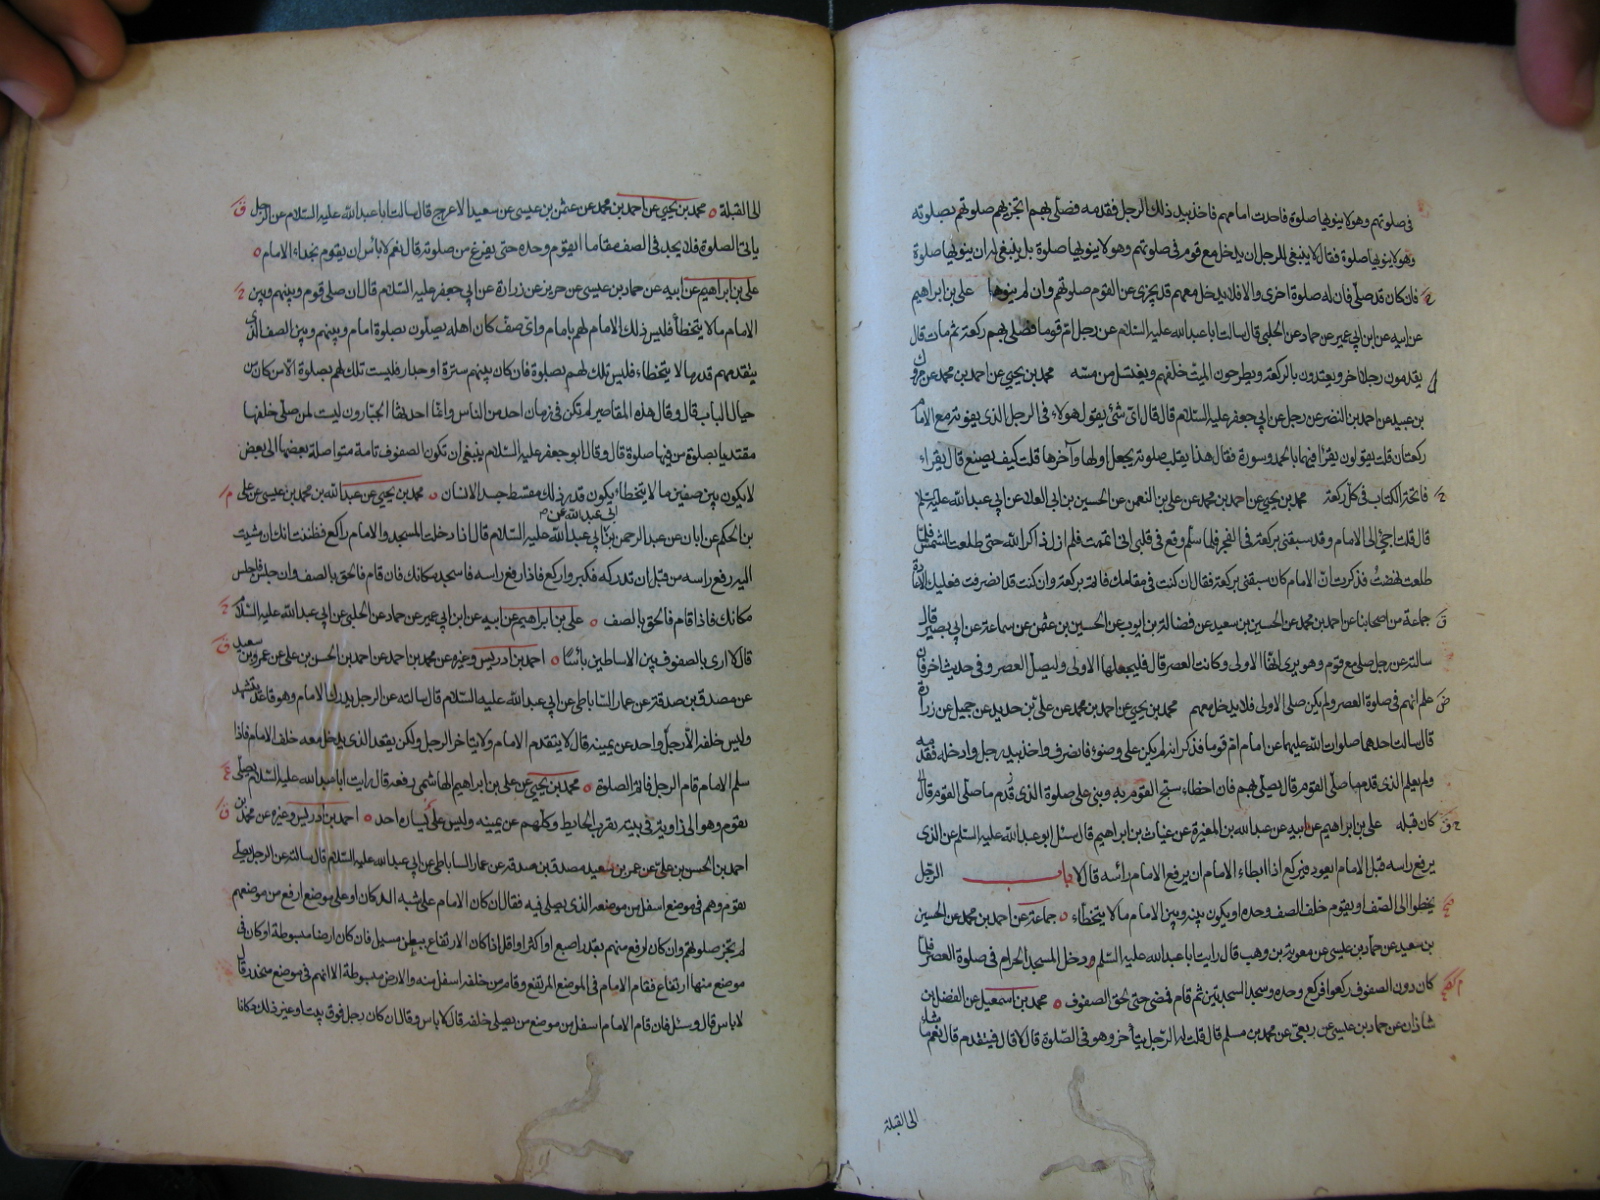 فى صلوتهم وهو لا ينويها صلوة فاحدث امامهم فاخذ بيد ذلك الرجل فقدمه فصلى بهم اتجزيهم صلوتهم بصلوته
وهو لا ينويها صلوة فقال لا ينبغى للرجل ان يدخل مع قوم فى صلوتهم وهو لا ينويها صلوة بل ينبغى له ان ينويها صلوة
فان كان قد صلى فان له صلوة اخرى والا فلا يدخل معهم قد يجزى عن القوم صلوتهم وان لم ينوها على بن ابراهيم
عن ابيه عن ابن ابى عمير عن حماد عن الحلبى قال سالت ابا عبد الله عليه السلام عن رجل ام قوما فصلى بهم ركعة ثم مات قال
يقدمون رجلا اخر ويعتدون بالركعة ويطرحون الميت خلفهم ويغتسل من مسه محمد بن يحيى عن احمد بن محمد عن
بن عبيد عن احمد بن النضر عن رجل عن ابى جعفر عليه السلام قال قال اى شئ يقول هولاء فى الرجل الذى يفوته مع الامام
ركعتان قلت يقولون يقرا فيهما بالحمد وسورة فقال هذا يقلب صلوته يجعل اولها وآخرها قلت كيف يصنع قال يقراء
فاتحة الكتاب فى كل ركعة محمد بن يحيى عن احمد بن محمد عن على بن النعمن عن الحسين بن ابى العلاء عن ابى عبد الله عليه السلم
قال قلت اجئ الى الامام وقد سبقنى بركعة فى الفجر فلما سلم وقع فى قلبى انى اتممت فلم ازل اذكر الله حتى طلعت الشمس فلما
طلعت نهضت فذكرت ان الامام كان سبقنى بركعة فقال ان كنت فى مقامك فاتم بركعة وان كنت قد انصرفت فعليك الاعادة
جماعة من اصحابنا عن احمد بن محمد عن الحسين بن سعيد عن فضالة بن ايوب عن الحسين بن عثمن عن سماعة عن ابى بصير قال
سالته عن رجل صلى مع قوم وهو يرى انها الاولى وكانت العصر قال فليجعلها الاولى وليصل العصر وفى حديث اخر فان
علم انهم فى صلوة العصر ولم يكن صلى الاولى فلا يدخل معهم محمد بن يحيى عن احمد بن محمد عن على بن حديد عن جميل عن زرارة
قال سالت احدهما صلوات الله عليهما عن امام ام قوما فذكر انه لم يكن على وضوء فانصرف واخذ بيد رجل وادخله فقدمه
ولم يعلم الذى قدم ما صلى القوم قال يصلى بهم فان اخطاء سبح القوم به وبنى على صلوة الذى قدم ما صلى القوم قال
كان قبله على بن ابراهيم عن ابيه عن عبد الله بن المغيرة عن غياث بن ابراهيم قال سئل ابو عبد الله عليه السلم عن الذى
يرفع راسه قبل الامام ايعود فيركع اذا ابطاء الامام ان يرفع الامام رائسه قال لا باب الرجل
يخطوا الى الصف او يقوم خلف الصف وحده او يكون بينه وبين الامام ما لا يتخطاء جماعة عن احمد بن محمد عن الحسين
بن سعيد عن حماد بن عيسى عن معوية بن وهب قال رايت ابا عبد الله عليه السلم ودخل المسجد الحرام فى صلوة العصر فلما
كان دون الصفوف ركعوا فركع وحده وسجد السجدتين ثم قام فمضى حتى لحق الصفوف محمد بن اسمعيل عن الفضل بن
شاذان عن حماد بن عيسى عن ربعى عن محمد بن مسلم قال قلت له الرجل يتأخر وهو فى الصلوة قال لا قال فيتقدم قال نعم ما شاء
الى القبلة
الى القبلة محمد بن يحيى عن احمد بن محمد عن عثمن بن عيسى عن سعيد الاعرج قال سالت ابا عبد الله عليه السلام عن الرجل
ياتى الصلوة فلا يجد فى الصف مقاما ايقوم وحده حتى يفرغ من صلوته قال نعم لا بأس ان يقوم بحذاء الامام
على بن ابراهيم عن ابيه عن حماد بن عيسى عن حريز عن زرارة عن ابى جعفر عليه السلام قال ان صلى قوم وبينهم وبين
الامام ما لا يتخطأ فليس ذلك الامام لهم بامام واى صف كان اهله يصلون بصلوة امام وبينهم وبين الصف الذى
يتقدمهم قدر ما لا يتخطاء فليس تلك لهم بصلوة فان كان بينهم سترة او جدار فليست تلك لهم بصلوة الا من كان من
حيال الباب قال وقال هذه المقاصير لم تكن فى زمان احد من الناس وانما احدثها الجبارون ليست لمن صلى خلفها
مقتديا بصلوة من فيها صلوة قال وقال ابو جعفر عليه السلام ينبغى ان تكون الصفوف تامة متواصلة بعضها الى بعض
لا يكون بين صفين ما لا يتخطاء يكون قدر ذلك مسقط جسد الانسان محمد بن يحيى عن عبد الله بن محمد بن عيسى عن على
ابى عبد الله عن
بن الحكم عن ابان عن عبد الرحمن بن ابى عبد الله عليه السلام قال اذا دخلت المسجد والامام راكع فظننت انك ان مشيت
اليه رفع راسه من قبل ان تدركه فكبر واركع فاذا رفع راسه فاسجد مكانك فان قام فالحق بالصف وان جلس فاجلس
مكانك فاذا قام فالحق بالصف على بن ابراهيم عن ابيه عن ابن ابى عمير عن حماد عن الحلبى عن ابى عبد الله عليه السلام
قال لا ارى بالصفوف بين الاساطين بائسا احمد بن ادريس وغيره عن محمد بن احمد عن احمد بن الحسن بن على عن عمرو بن سعيد
عن مصدق بن صدقة عن عمار الساباطى عن ابى عبد الله عليه السلام قال سالته عن الرجل يدرك الامام وهو قاعد يتشهد
وليس خلفه الا رجل واحد عن يمينه قال لا يتقدم الامام ولا يتاخر الرجل ولكن يقعد الذى يدخل معه خلف الامام فاذا
سلم الامام قام الرجل فاتم الصلوة محمد بن يحيى عن على بن ابراهيم الهاشمى رفعه قال رايت ابا عبد الله عليه السلام يصلى
بقوم وهو الى زاوية فى بيته بقرب الحايط وكلهم عن يمينه وليس على يساره احد احمد بن ادريس وغيره عن محمد بن
احمد بن الحسن بن على عن عمر بن سعيد مصدق بن صدقة عن عمار الساباطى عن ابى عبد الله عليه السلام قال سالته عن الرجل يصلى
بقوم وهم فى موضع اسفل من موضعه الذى يصلى فيه فقال ان كان الامام على شبه الدكان او على موضع ارفع من موضعهم
لم يجز صلوتهم وان كان ارفع منهم بقدر اصبع او اكثر او اقل اذا كان الارتفاع ببطن مسيل فان كان ارضا مبسوطة او كان فى
موضع منها ارتفاع فقام الامام فى الموضع المرتفع وقام من خلفه اسفل منه والارض مبسوطة الا انهم فى موضع منحدر قال
لا باس قال وسئل فان قام الامام اسفل من موضع من يصلى خلفه قال لا باس وقال ان كان رجل فوق بيت او غير ذلك دكانا